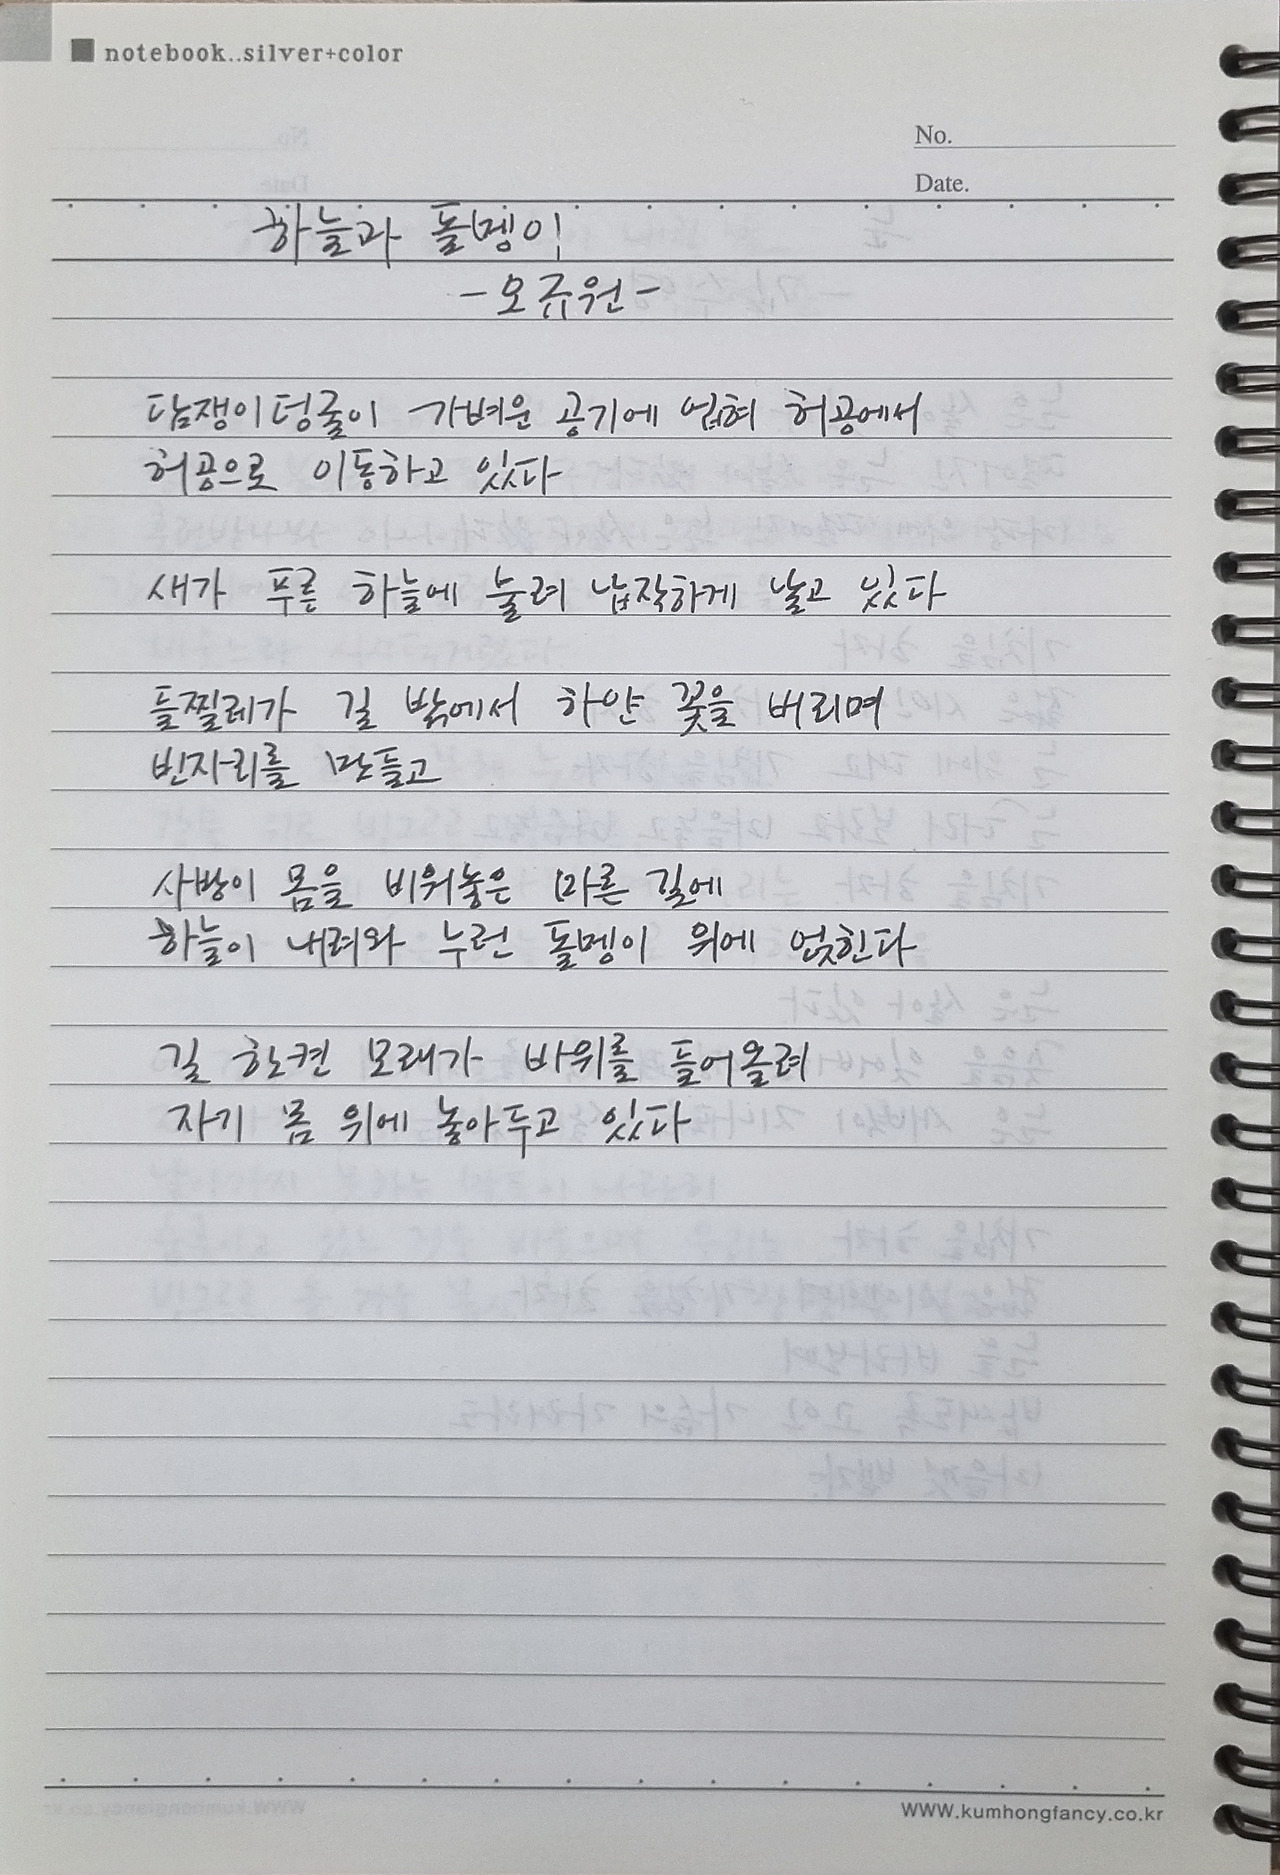 notebook..silver+color
No.
Date.
하늘과 돌멩이
-오규원-
담쟁이덩굴이 가벼운 공기에 업혀 허공에서
허공으로 이동하고 있다
새가 푸른 하늘에 눌려 납작하게 날고 있다
들찔레가 길 밖에서 하얀 꽃을 버리며
빈자리를 만들고
사방이 몸을 비워놓은 마른 길에
하늘이 내려와 누런 돌멩이 위에 얹힌다
길 한켠 모래가 바위를 들어올려
자기 몸 위에 놓아두고 있다
WWW.kumhongfancy.co.kr